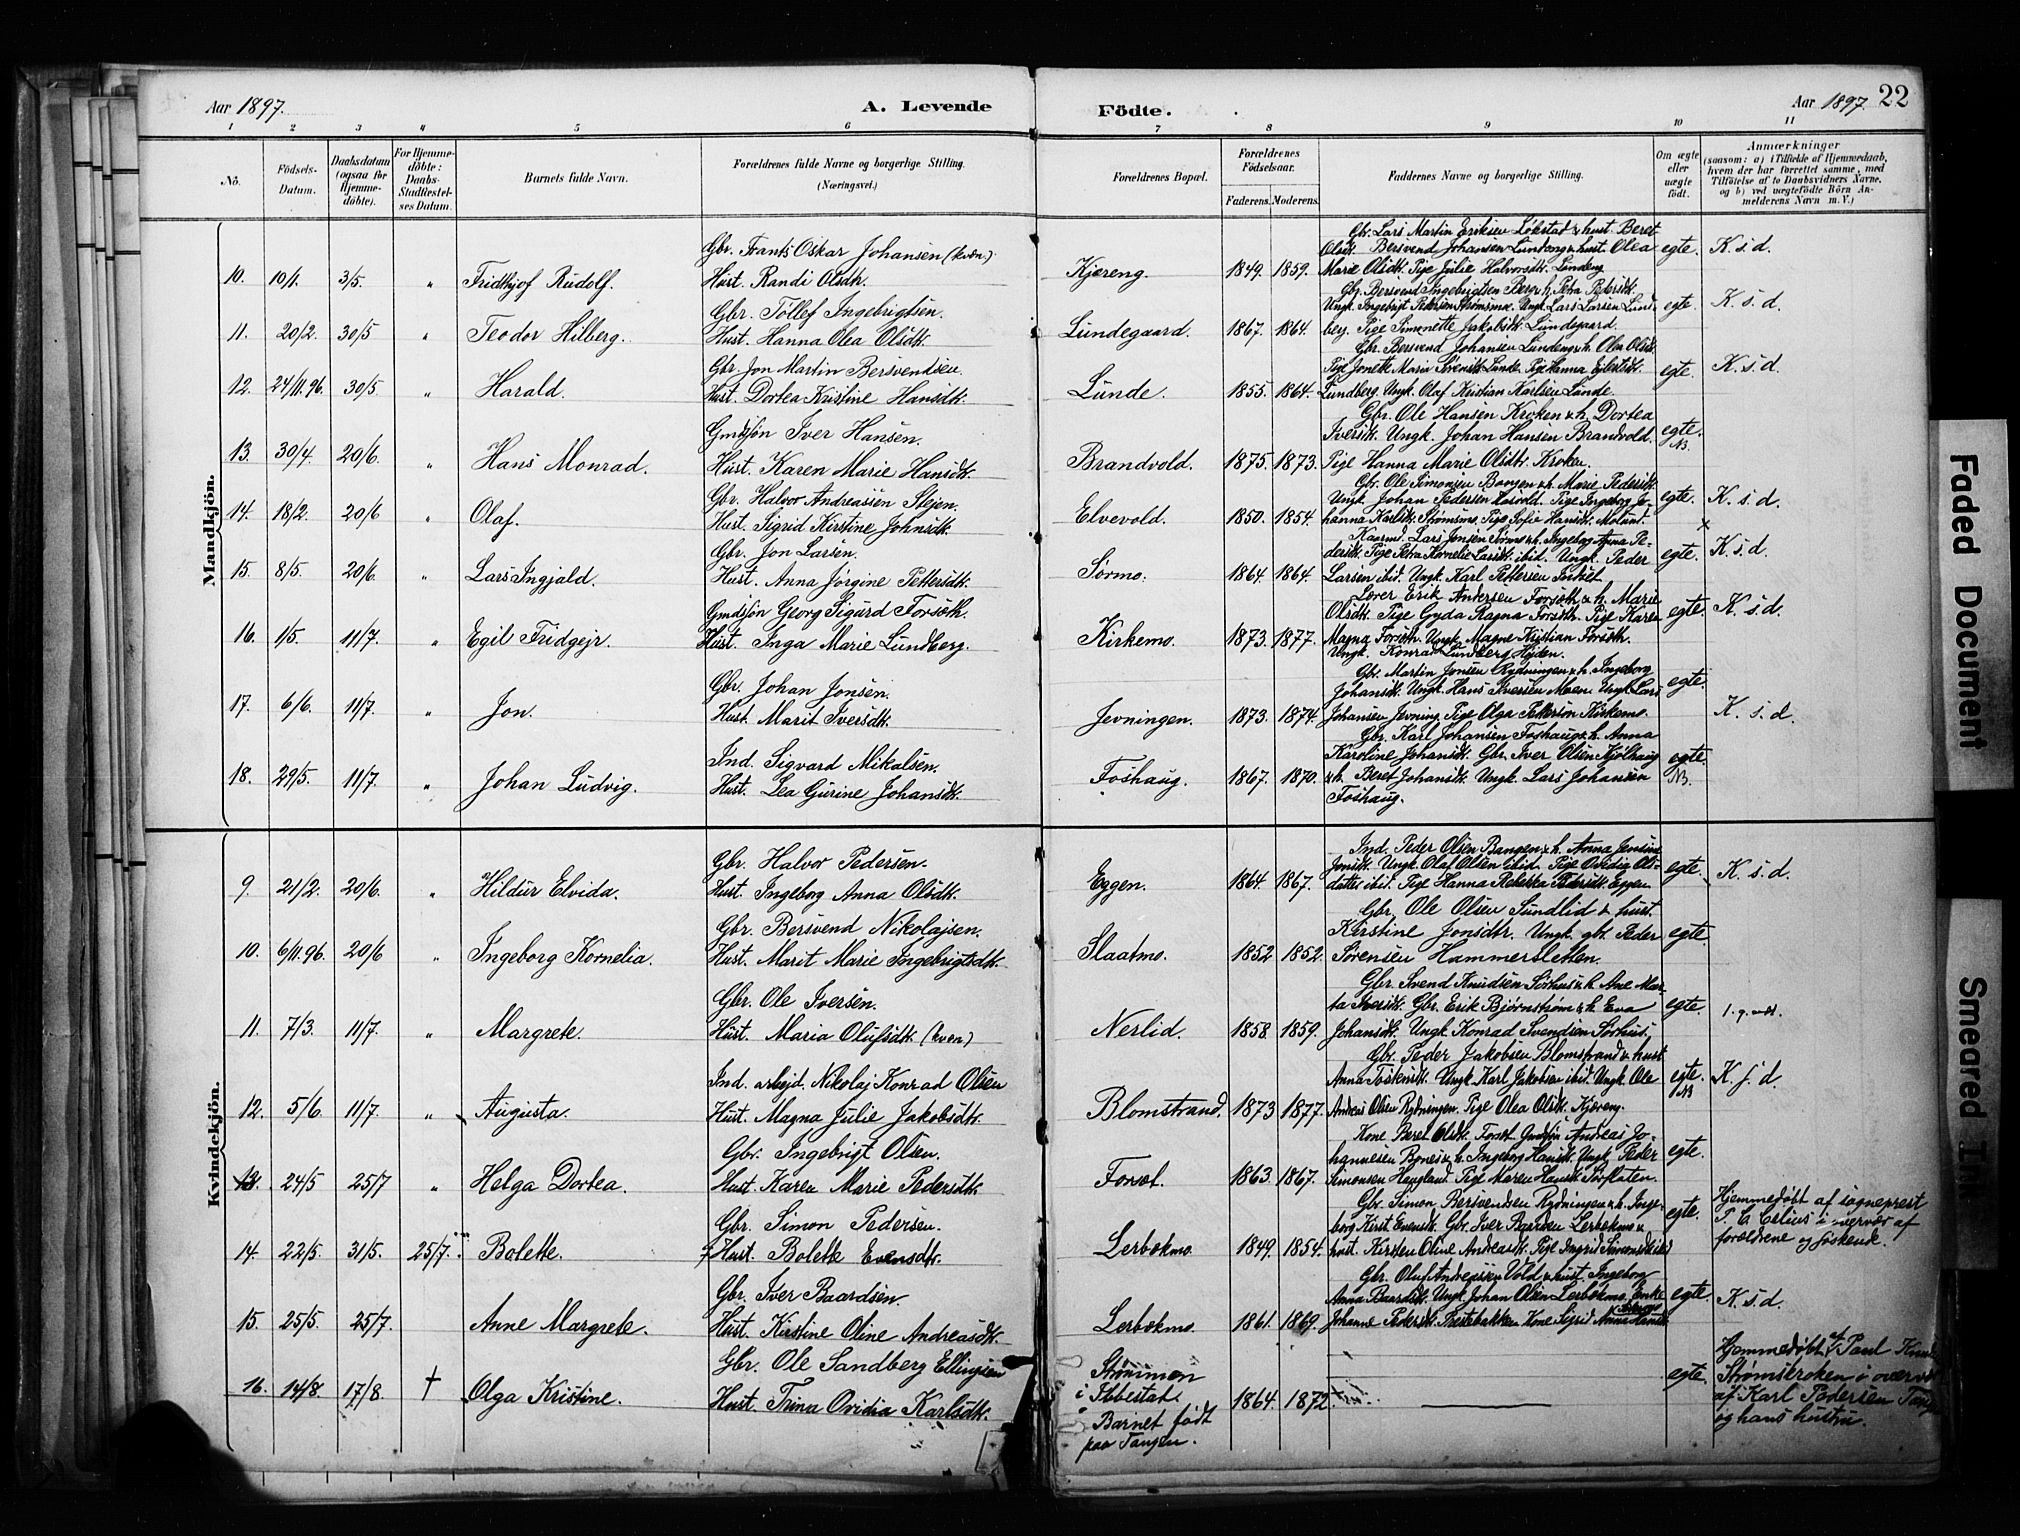 Aar 1897. A. Levende Födte. Aar 1897. 22
1 2 3 4 5 6 7 8 9 10 11
No. Födsels-Datum. Daabsdatum (ogsaa for Hjemmedöbte). For Hjemmedöbte: Daabs-Stadfestelses Datum. Barnets fulde Navn. Forældrenes fulde Navne og borgerlige Stilling. (Næringsvei.) Forældrenes Bopæl. Forældrenes Födselsaar. Faderens. Moderens. Faddernes Navne og borgerlige Stilling. Om ægte eller uægte födt. Anmærkninger (saasom: a) i Tilfælde af Hjemmedaab, hvem der har forrettet samme, med Tilföielse af to Daabsvidners Navne, og b) ved uægtefödte Börn Anmelderens Navn m. V.)
Mandkjön.
Gbr. Frants Oskar Johansen (kvæn.) Gbr. Lars Martin Eriksen Løkstad & hust. Beret
Olsdt. Bersvend Johansen Lundeng & hust. Olea egte. K. s. d.
10. 10/1. 3/5. " Fridthjof Rudolf. Hust. Randi Olsdtr. Kjæreng. 1849. 1859. Marie Olsdtr. Pige Julie Halvorsdtr. Lundeng
Gbr. Tollef Ingebrigtsen. Gbr. Bersvend Ingebrigtsen Berg & h. Petra Pedersdt.
Ungk. Ingebrigt Pedersen Strømsmo. Ungk. Lars Larsen Lund- egte. K. s. d.
11. 20/2. 30/5 " Teodor Hilberg. Hust. Hanna Olea Olsdtr. Lundegaard. 1867. 1864. berg. Pige Simonette Jakobsdtr. Lundegaard.
Gbr. Jon Martin Bersvendsen. Gbr. Bersvend Johansen Lundeng & h. Olea Olsdt.
Pige Jonette Marie Sørensdtr. Lunde. Pige Hanna Eilertsdt. egte. K. s. d.
12. 24/11.96. 30/5. " Harald. Hust. Dortea Kristine Hansdtr. Lunde. 1855. 1864. Lundberg. Ungk. Olaf Kristian Karlsen Lunde.
Gmdsjøn Iver Hansen. Gbr. Ole Hansen Kroken & h. Dortea
Iversdt. Ungk. Johan Hansen Brandvold. egte. NB.
13. 30/4. 20/6. " Hans Monrad. Hust. Karen Marie Hansdtr. Brandvold. 1875. 1873. Pige Hanna Marie Olsdtr. Kroken.
Gbr. Halvor Andreassen Stejen. Gbr. Ole Simonsen Bangen & h. Marie Pedersdt.
egte. K. s. d.
14. 18/2. 20/6 " Olaf. Hust. Sigrid Kirstine Johnsdtr. Elvevold. 1850. 1854. hanna Karlsdtr. Strømsmo. Pige Sofie Hansdtr. Moland.
Gbr. Jon Larsen. Kaarmd. Lars Jonsen Sørmo & h. Ingeborg Anna Pe-
dersdt. Pige Petra Kornelie Larsdt. ibid. Ungk. Peder egte. K. s. d.
15. 8/5. 20/6. " Lars Ingjald. Hust. Anna Jørgine Pettersdtr. Sørmo. 1864. 1864. Larsen ibid. Ungk. Karl Pettersen
Gmdsjøn Georg Sigurd Forseth. Lærer Erik Andersen Forseth & h. Marie
Olsdtr. Pige Gyda Ragna Forseth. Pige Karen egte. K. s. d.
16. 1/5. 11/7. " Egil Fridgejr. Hust. Inga Marie Lundberg. Kirkemo. 1873. 1877. Magna Forseth. Ungk. Magne Kristian Forseth.
Ungk. Konrad Lundberg Højden.
Gbr. Johan Jonsen. Gbr. Martin Jonsen Rydningen & h. Ingeborg
Johansdtr. Ungk. Hans Iversen Moen. Ungk. Lars egte.
17. 6/6. 11/7. " Jon. Hust. Marit Iversdtr. Jevningen. 1873. 1874. Johansen Jevning. Pige Olga Petterson Kirkemo. K. s. d.
Ind. Sigvard Mikalsen. Gbr. Karl Johansen Foshaug & h. Anna
Karoline Johansdt. Gbr. Iver Olsen Kjølhaug egte. NB.
18. 29/5. 11/7. " Johan Ludvig. Hust. Lea Gurine Johansdtr. Foshaug. 1867. 1870. & h. Beret Johansdtr. Ungk. Lars Johansen
Foshaug.
Kvindekjön.
Gbr. Halvor Pedersen. Ind. Peder Olsen Bangen & h. Anna Jensine
Jonsdt. Ungk. Olaf Olsen ibid. Pige Ovidia Ols- egte. K. s. d.
9. 21/2. 20/6. " Hildur Elvida. Hust. Ingeborg Anna Olsdtr. Eggen. 1864. 1867. datter ibid. Pige Hanna Rebekka Pedersdtr. Eggen
Gbr. Bersvend Nikolajsen. Gbr. Ole Olsen Sundlid & hust.
Kirstine Jonsdtr. Ungk. gbr. Peder egte.
10. 6/11.96. 20/6 " Ingeborg Kornelia. Hust. Marit Marie Ingebrigtsdtr. Slaatmo. 1852 1852. Sørensen Hammersletten.
Gbr. Ole Iversen. Gbr. Svend Knudsen Sørhus & h. Ane Mar-
ta Iversdt. Gbr. Erik Bjørnstrøm & h. Eva egte. 1. g. vac.
11. 7/3. 11/7. " Margrete. Hust. Maria Olufsdtr. (kvæn) Nerlid. 1858. 1859. Johansdt. Ungk. Konrad Svendsen Sørhus.
Ind. arbejd. Nikolaj Konrad Olsen Gbr. Peder Jakobsen Blomstrand & hust.
Ungk. Karl Jakobsen ibid. Ungk. Ole egte. NB K. s. d.
12. 5/6. 11/7. " Augusta. Hust. Magna Julie Jakobsdtr. Blomstrand. 1873 1877. Andreas Olsen Rydningen. Pige Olea Olsdt. Kjæreng.
Gbr. Ingebrigt Olsen. Kone Beret Olsdt. Forset. Gmdsjøn Andreas Jo-
hannesen Bones & h. Ingeborg Hansdt. Ungk. Peder egte.
13. 24/5 25/7 " Helga Dortea. Hust. Karen Marie Pedersdtr. Forset. 1863. 1867. Simonsen Haugland. Pige Maren Hansdt. Sørflaten.
Gbr. Simon Pedersen. Gbr. Simon Bersvendsen Rydningen & h. Inge- Hjemmedøbt af sogneprest
borg Kirst. Evensdt. Gbr. Iver Baardsen Lerbekmo & egte. P. C. Celius i overvær af
14. 22/5. 31/5. 25/7. Bolette. Hust. Bolette Evensdtr. Lerbekmo. 1849. 1854. hust. Kirsten Oline Andreasdt. Pige Ingrid Simonsdt. ibid forældrene og søskende.
Gbr. Iver Baardsen. Gbr. Oluf Andreassen Vold & hust. Ingeborg
Anna Baardsdt. Ungk. Johan Olsen Lerbekmo. Enke egte. K. s. d.
15. 25/5. 25/7. Anne Margrete. Hust. Kirstine Oline Andreasdt. Lerbekmo. 1861. 1869. Johanne Pedersdt. Prestebakken. Kone Sigrid Anna Hansdt.
Gbr. Ole Sandberg Ellingsen Strømmen egte. Hjemmedøbt af Paul
16. 14/8. 17/8. † Olga Kristine. Hust. Trina Ovidia Karlsdtr. i Ibbestad. 1864. 1872. Strømskroken i overvær
Barnet født af Karl Pedersen
paa Tangen. og hans hustru.
Faded Document
Smeared Ink